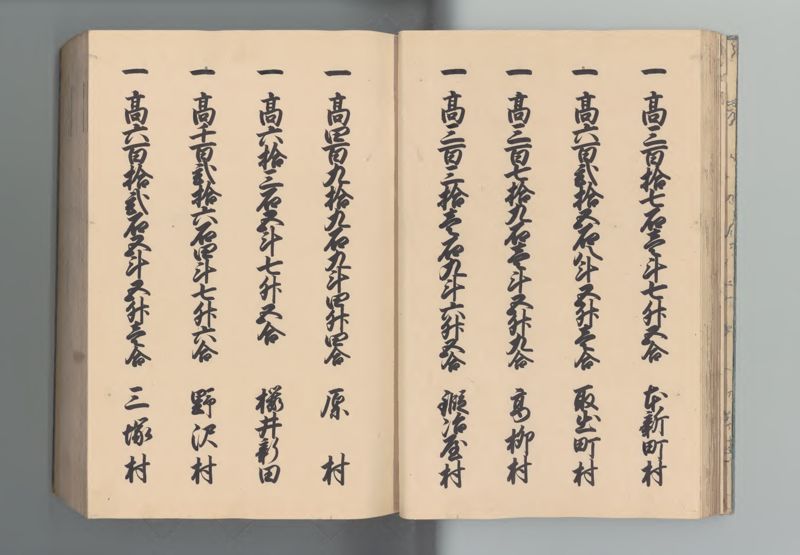 一 高三百拾七石壱斗七升五合 本新町村
一 高六百弐拾五石八斗五升壱合 取出町村
一 高三百七拾九石壱斗五升九合 高柳村
一 高三百三拾壱石九斗六升五合 鍛冶屋村
一 高四百九拾九石九斗四升四合 原村
一 高六拾三石五斗七升五合 櫻井新田
一 高千百弐拾六石四斗七升六合 野沢村
一 高六百拾弐石五斗五升壱合 三塚村